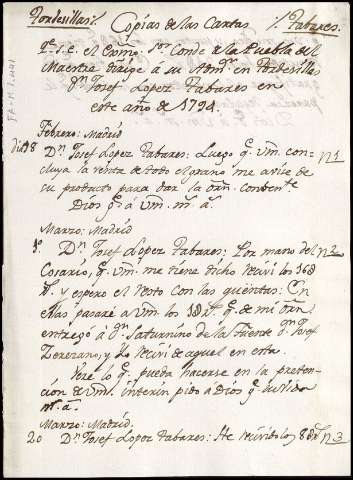 Tordesillas. Copias de las Cartas Tabares.
qe. S. E. el Exmo. Sor. Conde de la Puebla del
Maestre dirige á su Admor. en Tordesillas
Dn. Josef Lopez Tabares en
este año de 1794.
Febrero: Madrid
Dn. Josef Lopez Tabares: Luego q. vm. con= n1
cluya la venta de todo el grano, me avise de
su producto para dar la orn. conbente.
Dios ge. á vm. ms. as.
Marzo: Madrid
Dn. Josef Lopez Tabares: Por mano del n2
Cosario, q. vm. me tiene dicho reciví los 368
y espero el resto con las quentas: En
ellas pasaré a vm. los q. de mi orn.
entregó á Dn. Saturnino de la Fuente Dn. Josef
Zerezano, y lo reciví de aquel en esta.
Veré lo q. pueda hacerse en la preten=
ción de vm. interin pido a Dios ge. su vida
ms. as.
Marzo: Madrid.
20 Dn. Josef Lopez Tabares: He recivido los n3